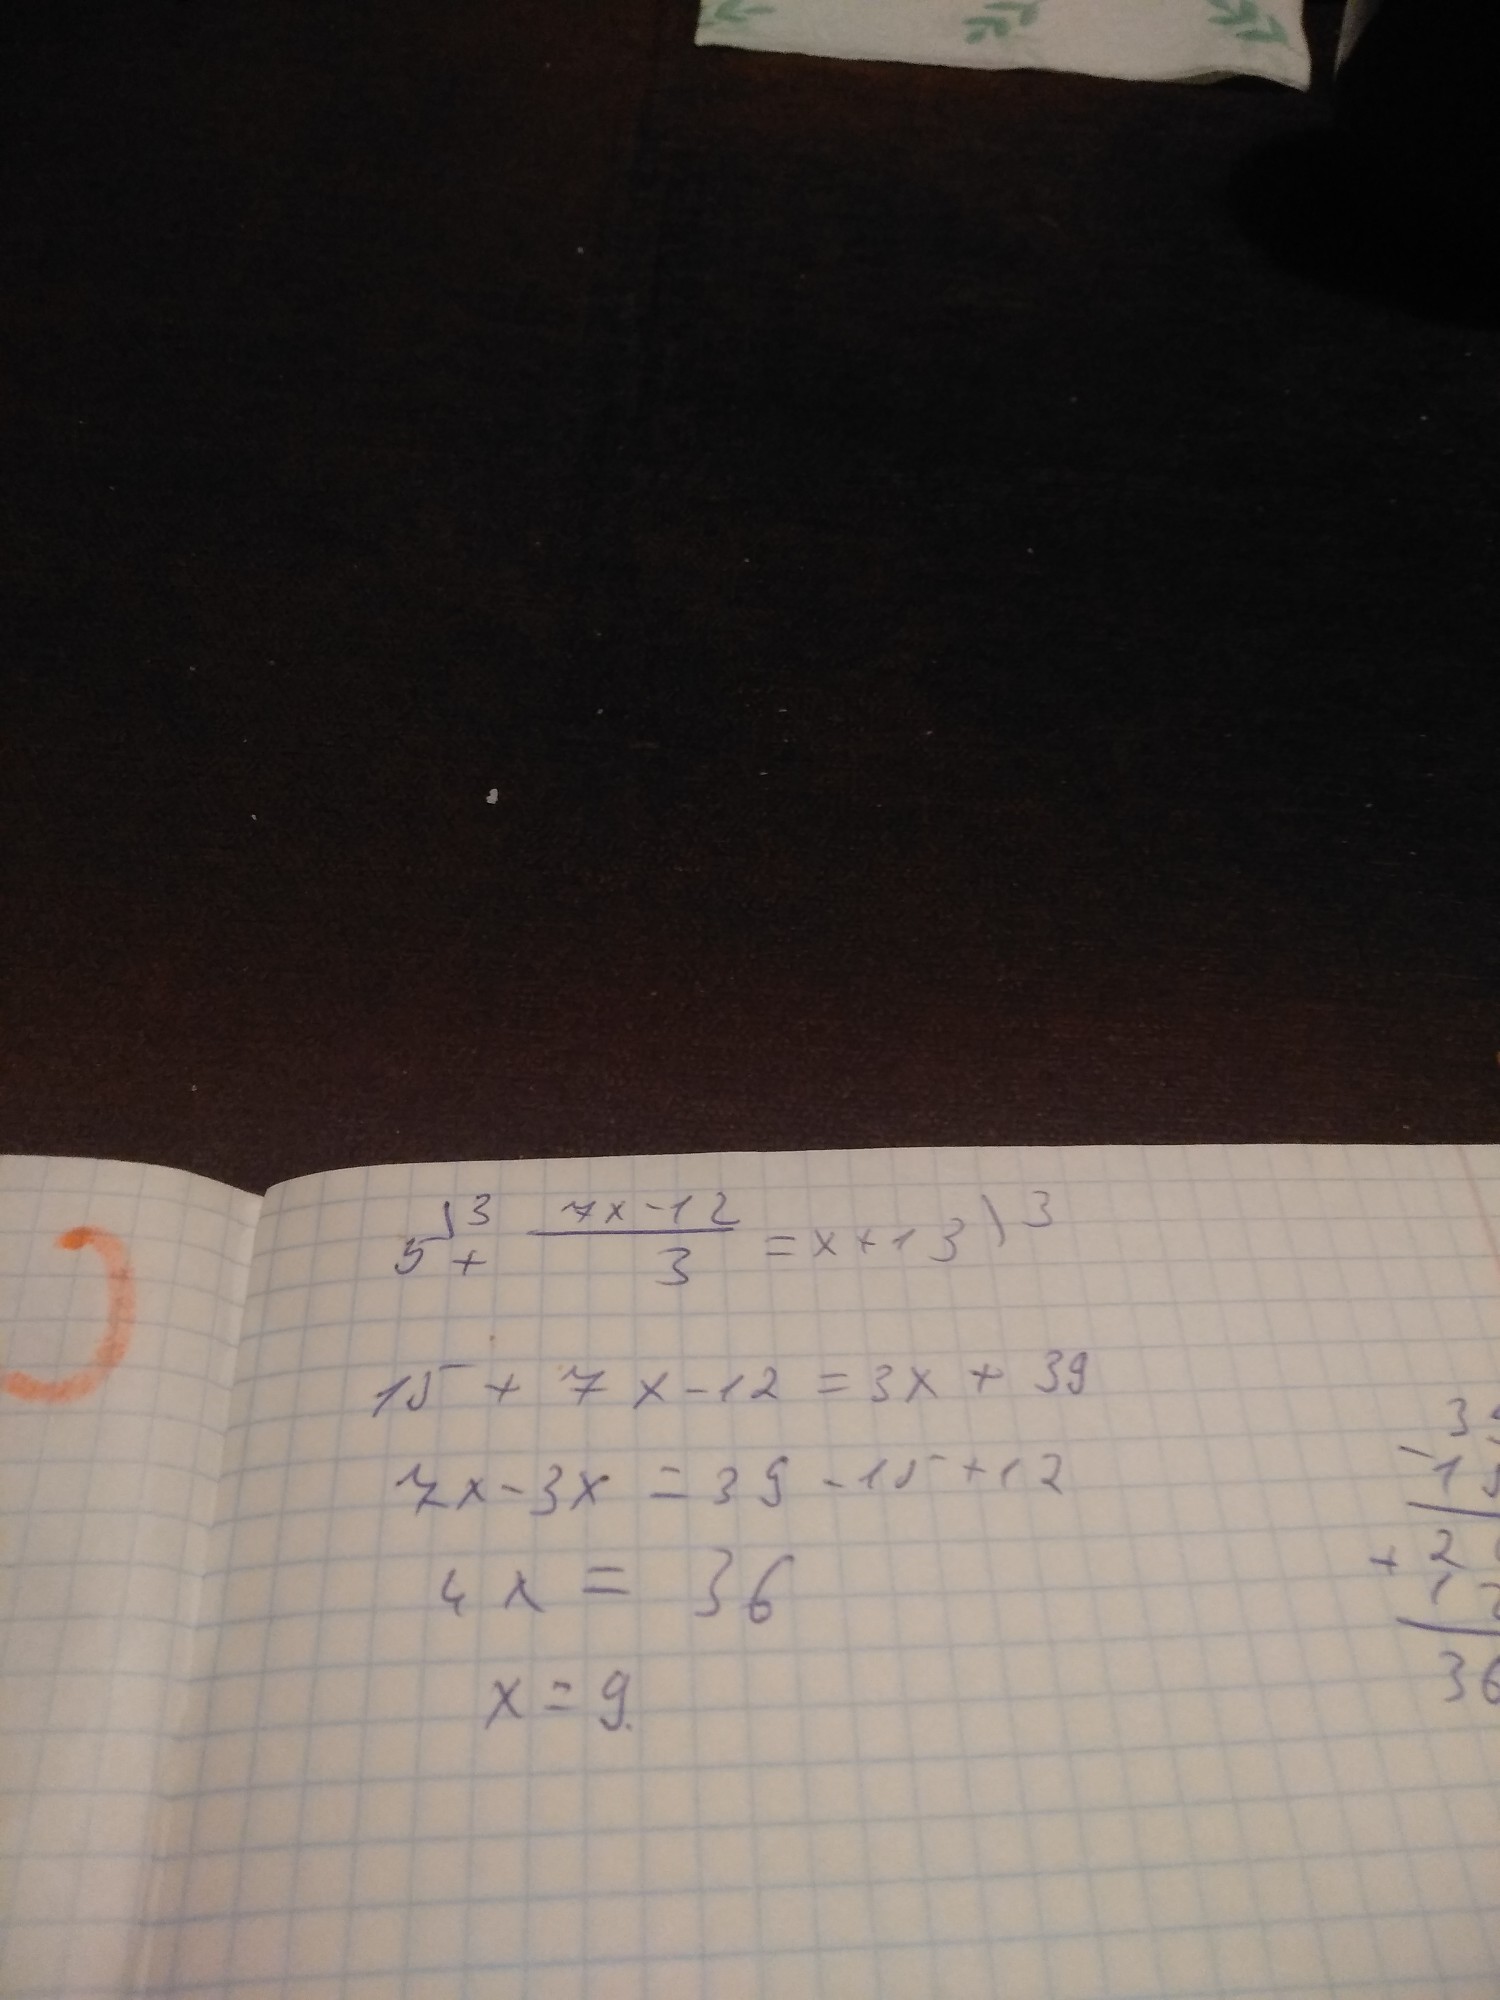 5⌋3 + (7x-12)/3 = x+13\3
15 + 7x-12 = 3x + 39
7x-3x = 39 -15 +12
4x = 36
x = 9.
3
- 1
+ 2
1
36